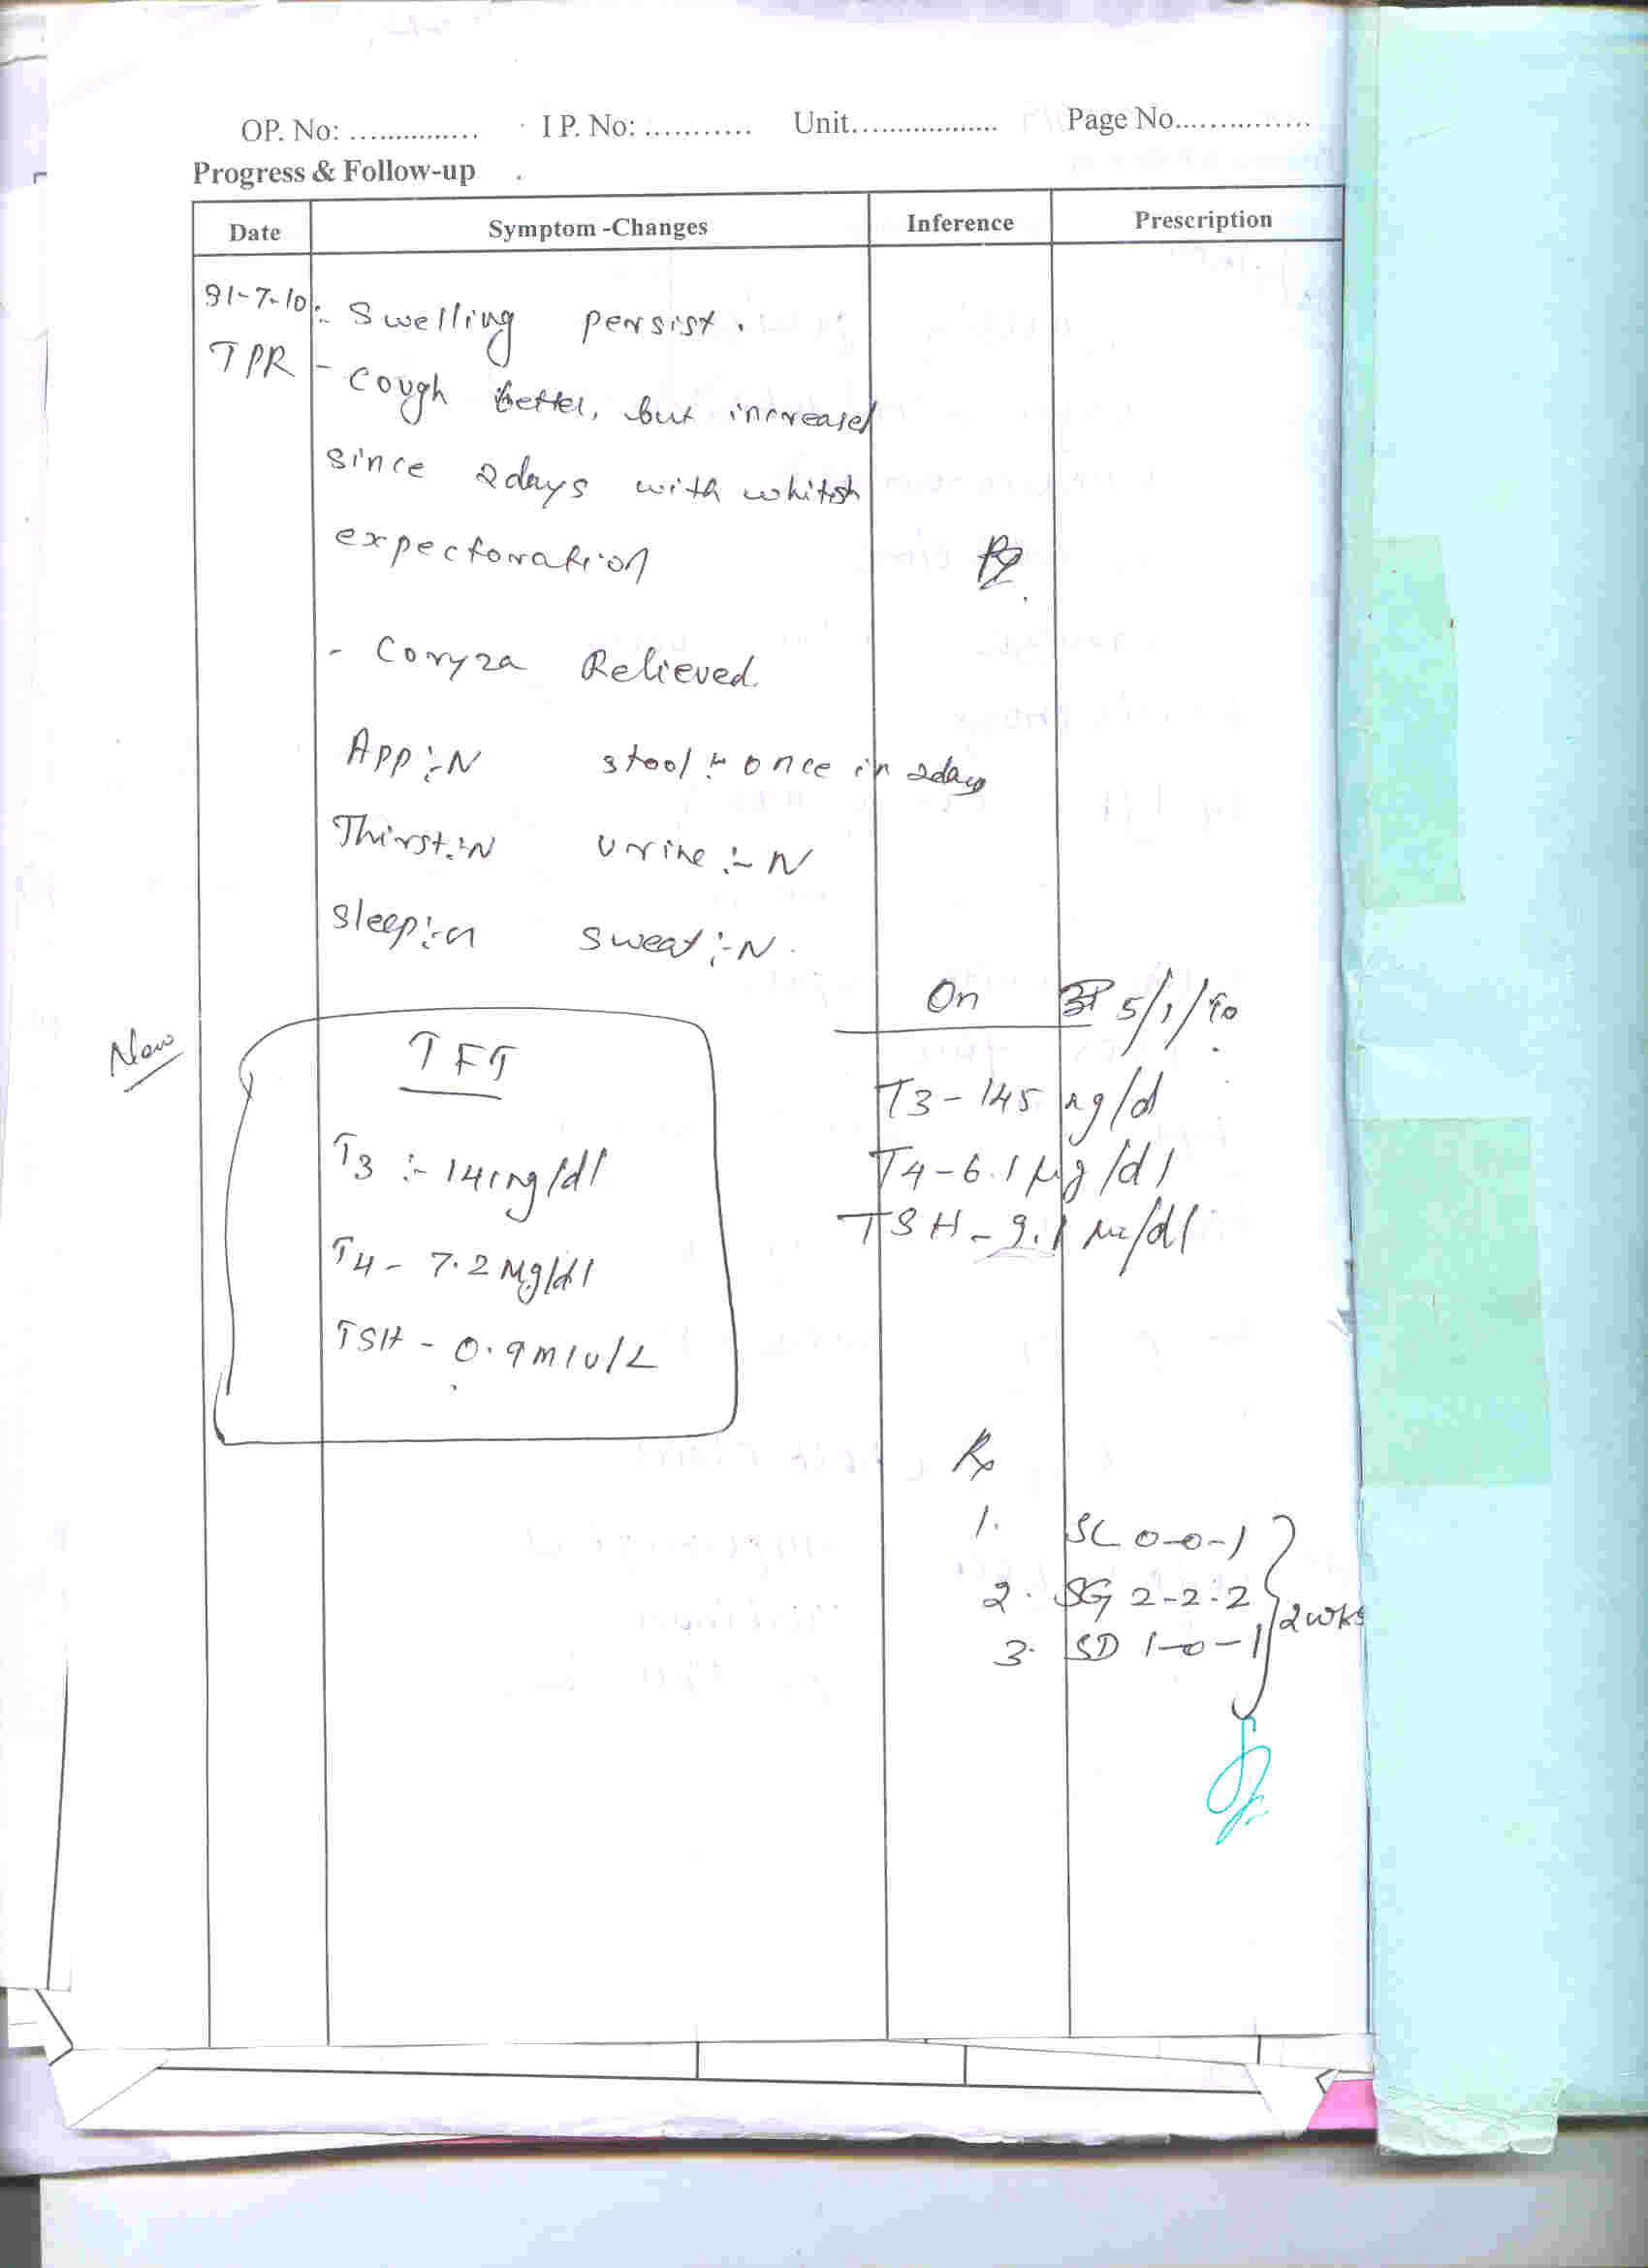 OP. No: ............... I P. No: ........... Unit.................. Page No...............
Progress & Follow-up
Date Symptom -Changes Inference Prescription
31-7-10 :- Swelling persist.
TPR - Cough better, but increased
since 2days with whitish
expectoration
Rx
- Coryza Relieved.
App :- N stool :- once in 2days
Thirst :- N Urine :- N
Sleep :- N Sweat :- N.
On 5/1/10
New
TFT
T3 - 145 ng/d
T3 :- 141ng/dl
T4 - 6.1 µg/dl
TSH - 9.1 /dl
T4 - 7.2 Mg/dl
TSH - 0.9 mIU/L
Rx
1. SL 0-0-1
2. SG 2-2-2
2wks
3. SD 1-0-1